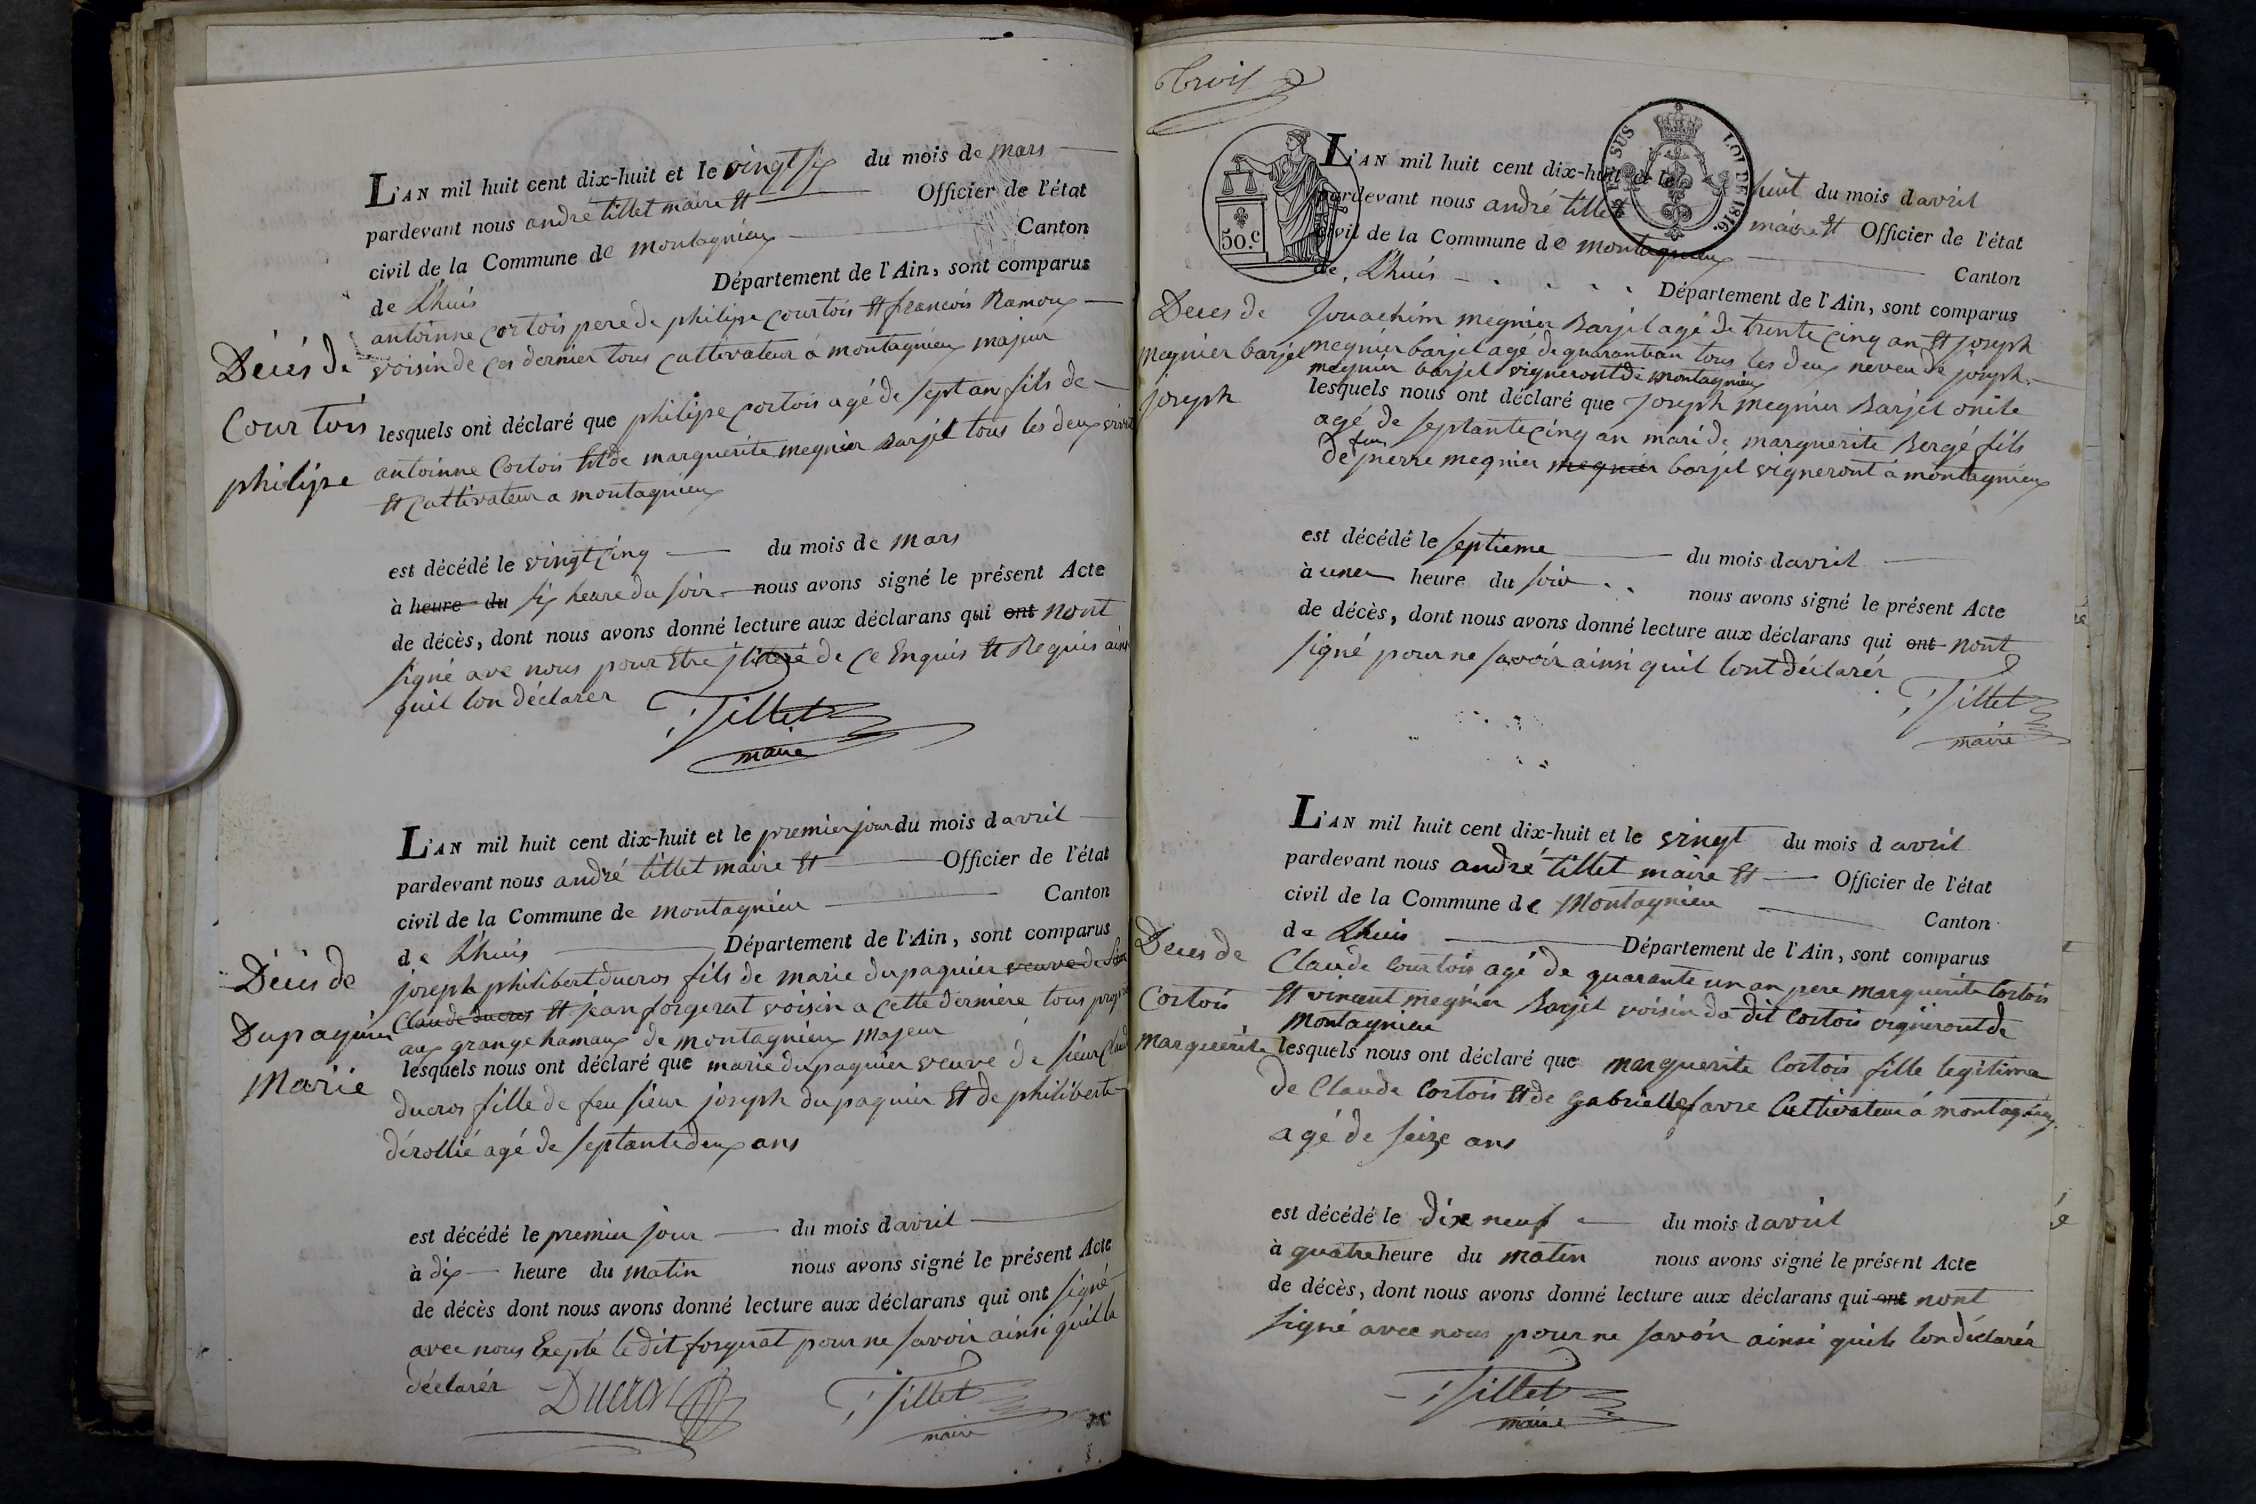 L'AN mil huit cent dix-huit et le vingt six du mois de mars
pardevant nous andré tillet maire et Officier de l'état
civil de la Commune de montagnieux Canton
de Lhuis Département de l'Ain, sont comparus
antoinne cortois pere de philipe courtois et francois Ramoux
voisin de ces dernier tous cultivateur á montagnieux majeur
Décés de
Courtois
philipe
lesquels ont déclaré que philipe cortois agé de sept an fils de
antoinne Cortois et de marguerite megnier Barjet tous les deux
et cultivateur a montagnieux
est décédé le vingt cinq du mois de mars
à heure du six heure du soir nous avons signé le présent Acte
de décès, dont nous avons donné lecture aux déclarans qui ont nont
signé ave nous pour Etre de ce Enquis et Requis ains
quil lon déclarer
Tillet
maire
L'AN mil huit cent dix-huit et le premier jour du mois d avril
pardevant nous andré tillet maire et Officier de l'état
civil de la Commune de montagnieu Canton
de Lhuis Département de l'Ain, sont comparus
Décés de
Dupaquier
Marie
joseph philibert ducros fils de marie dupaquier veuve de
Claude ducros et jean forgerat voisin a cette derniere tous
aux grange hamaux de montagnieux majeur
lesquels nous ont déclaré que marie dupaquier veuve de sieur Claud
ducros fille de feu sieur joseph dupaquier et de philiberte
dérollié agé de septante deux ans
est décédé le premier jour du mois d avril
à dix heure du matin nous avons signé le présent Acte
de décès dont nous avons donné lecture aux déclarans qui ont signé
avec nous Exepté le dit forgerat pour ne savoir ainsi quil la
déclarér
Ducros
Tillet
maire
Trois
SUS LOI DE 1816.
50.c
L'AN mil huit cent dix-huit et le huit du mois d avril
pardevant nous andré tillet maire et Officier de l'état
civil de la Commune de montagnieux Canton
de Lhuis Département de l'Ain, sont comparus
Deces de
megnier barjet
joseph
Jouachim megnier Barjet agé de trente cinq an et joseph
megnier barjet agé de quarante an tous les deux neveu de joseph
megnier barjet vigneront de montagnieux
lesquels nous ont déclaré que Joseph megnier Barjet onile
agé de septante cinq an mari de marguerite Bergé fils
de feu pierre megnier megnier barjet vigneront á montagnieux
est décédé le septieme du mois d avril
à une heure du soir nous avons signé le présent Acte
de décès, dont nous avons donné lecture aux déclarans qui ont nont
signé pour ne savoir ainsi quil lont déclarér
Tillet
maire
L'AN mil huit cent dix-huit et le vingt du mois d avril
pardevant nous andré tillet maire et Officier de l'état
civil de la Commune de Montagnieu Canton
de Lhuis Département de l'Ain, sont comparus
Deces de
Cortois
marguerite
Claude Courtois agé de quarante un an pere marguerite Cortois
et vincent megnier Barjet voisin du dit Cortois vigneront de
montagnieu
lesquels nous ont déclaré que marguerite Cortois fille legitime
de Claude Cortois et de gabrielle favre Cultivateur á montagnieux
agé de seize ans
est décédé le dixe neuf du mois d avril
à quatre heure du matin nous avons signé le présent Acte
de décès, dont nous avons donné lecture aux déclarans qui ont nont
signé avec nous pour ne savoir ainsi quils lon déclarér
Tillet
maire